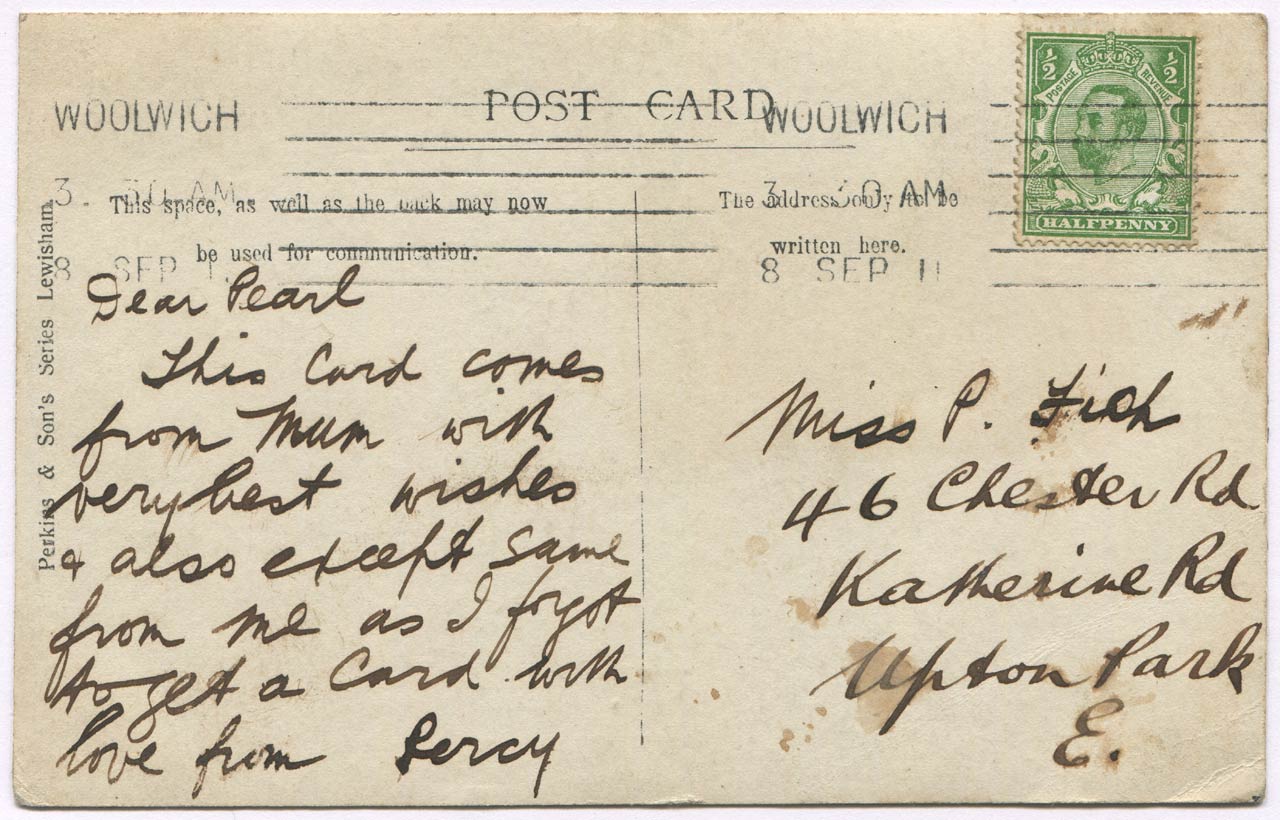 POST CARD
WOOLWICH
WOOLWICH
3. 30 AM
3. 30 AM
8 SEP 11
8 SEP 11
½ ½
POSTAGE REVENUE
HALFPENNY
This space, as well as the back may now
be used for communication.
The address only to be
written here.
Perkins & Son's Series Lewisham.
Dear Pearl
This Card comes
from Mum with
very best wishes
& also except same
from me as I forgot
to get a Card with
love from Percy
Miss P.
46 Chester Rd
Katherine Rd
Upton Park
E.